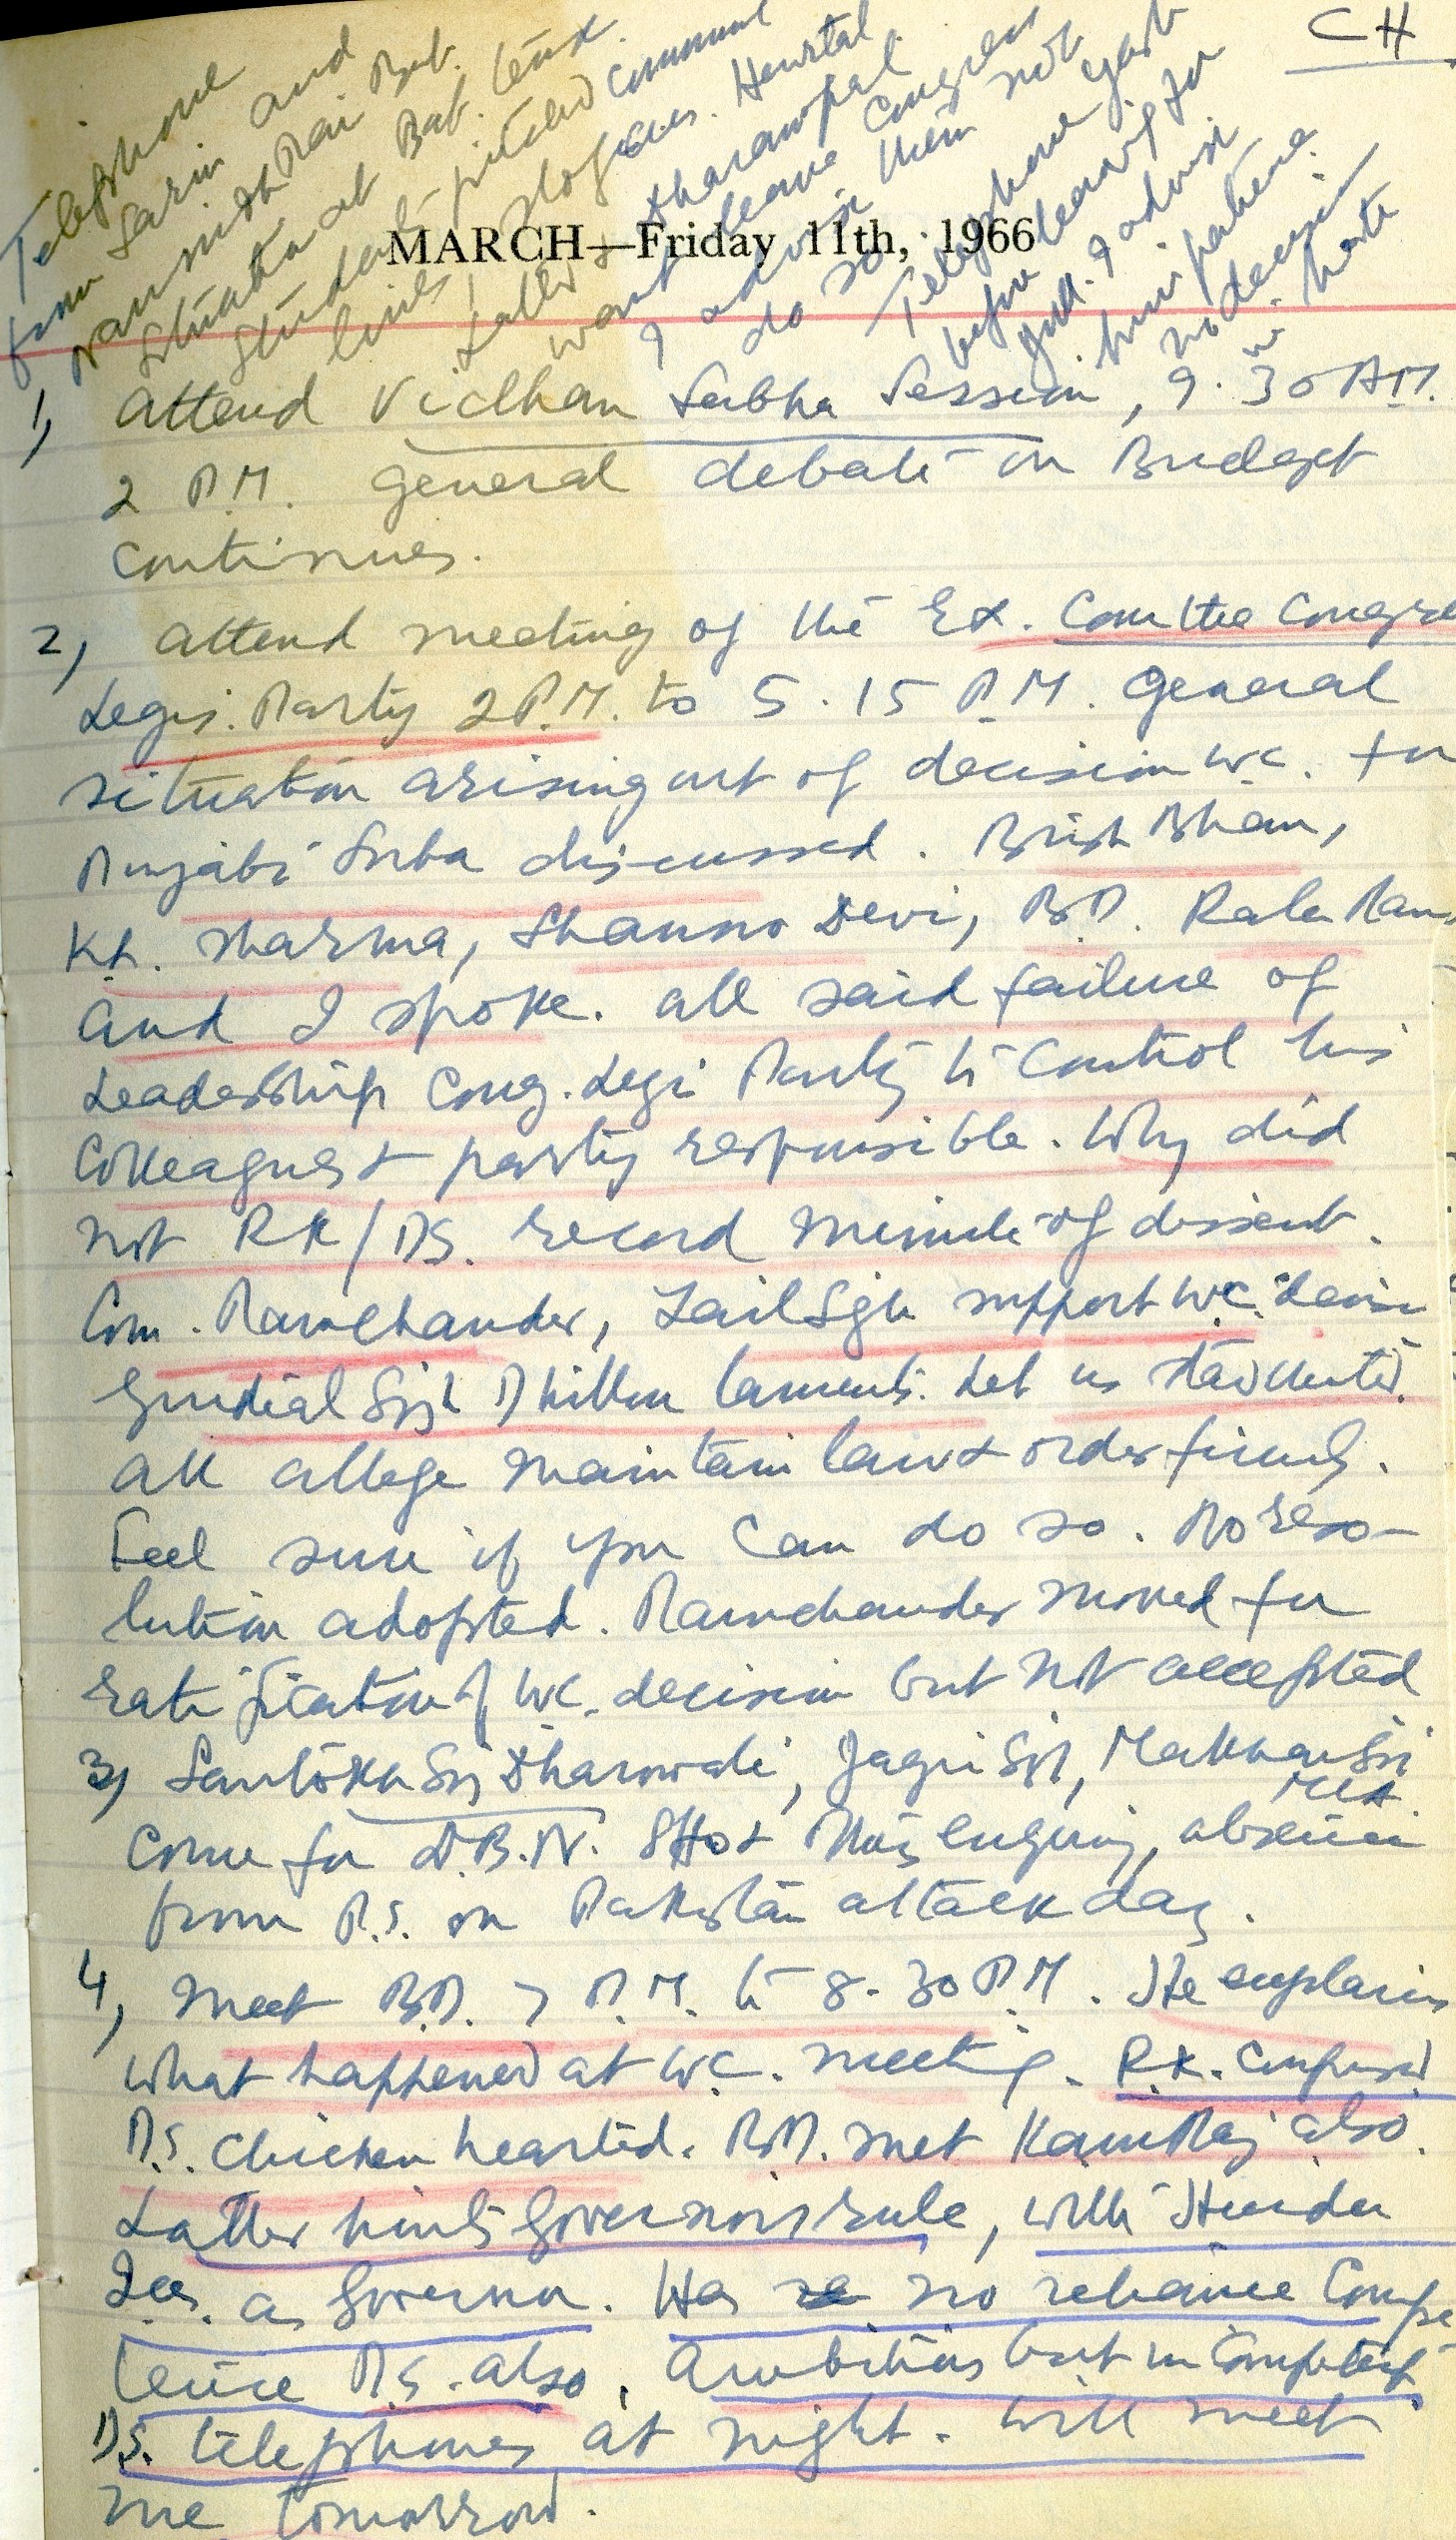 CH
Telephone
from Sarin and
Ramnindh Rai Bat.
situation at Bat. tense.
student pitched communal
lines slogans. Hartal
Latter
want leave Congress
I advise them not
do so
Telephone Yash
before leaving for
I advise
him patience.
no decision
in haste
MARCH—Friday 11th, 1966
1, Attend Vidhan Sabha Session, 9.30 AM.
2 P.M. general debate on Budget
continues.
2, Attend meeting of the Ex. Comttee Congre
Legis. Party 2 P.M. to 5.15 P.M. General
situation arising out of decision W.C. for
Punjabi Suba discussed. Brish Bhan,
K.L. Sharma, Shanno Devi, B.D. Rala Ram
and I spoke. All said failure of
Leadership Cong. Legi Party to control his
Colleagues & party responsible. Why did
not RK/DS. record minute of dissent.
Com. Ramchander, Zail Sgh support W.C. decision
Gurdial Singh Dhillon laments. Let us stand united.
All allege maintain law & order firmly.
Feel sure if you can do so. No reso-
lution adopted. Ramchander moved for
ratification of W.C. decision but not accepted
3, Santokh Sg Dharowali, Jagir Sgh, Makhan Sgh
MLA.
come for D.B.N. SHO & enquiry, absence
from P.S. on Pakistan attack day.
4, Meet B.D. 7 P.M. to 8.30 P.M. He explains
what happened at W.C. meeting. R.K. confused
D.S. chicken hearted. B.D. met KamRaj also.
Latter hints Governors rule, with Hunder
as Governor. Has no reliance Compe
tence D.S. also. Ambitious but incompetent
D.S. telephones at night. Will meet
me tomorrow.